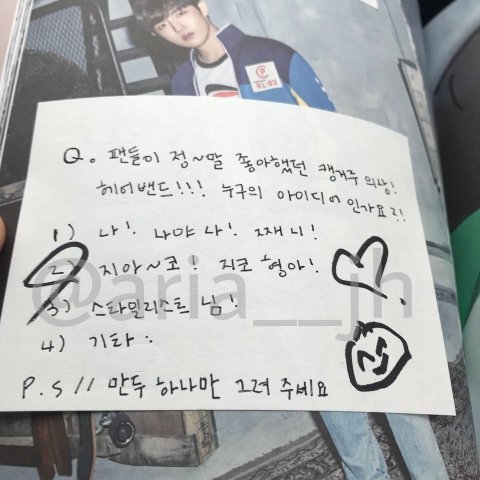 Q. 팬들이 정~말 좋아했던 캥거루 의상!
헤어밴드!!! 누구의 아이디어 인가요?!
1) 나! 나야 나! 째니!
2) 지아~코! 지코 형아!
3) 스타일리스트 님!
4) 기타 :
P.S // 만두 하나만 그려 주세요
@aria__jh